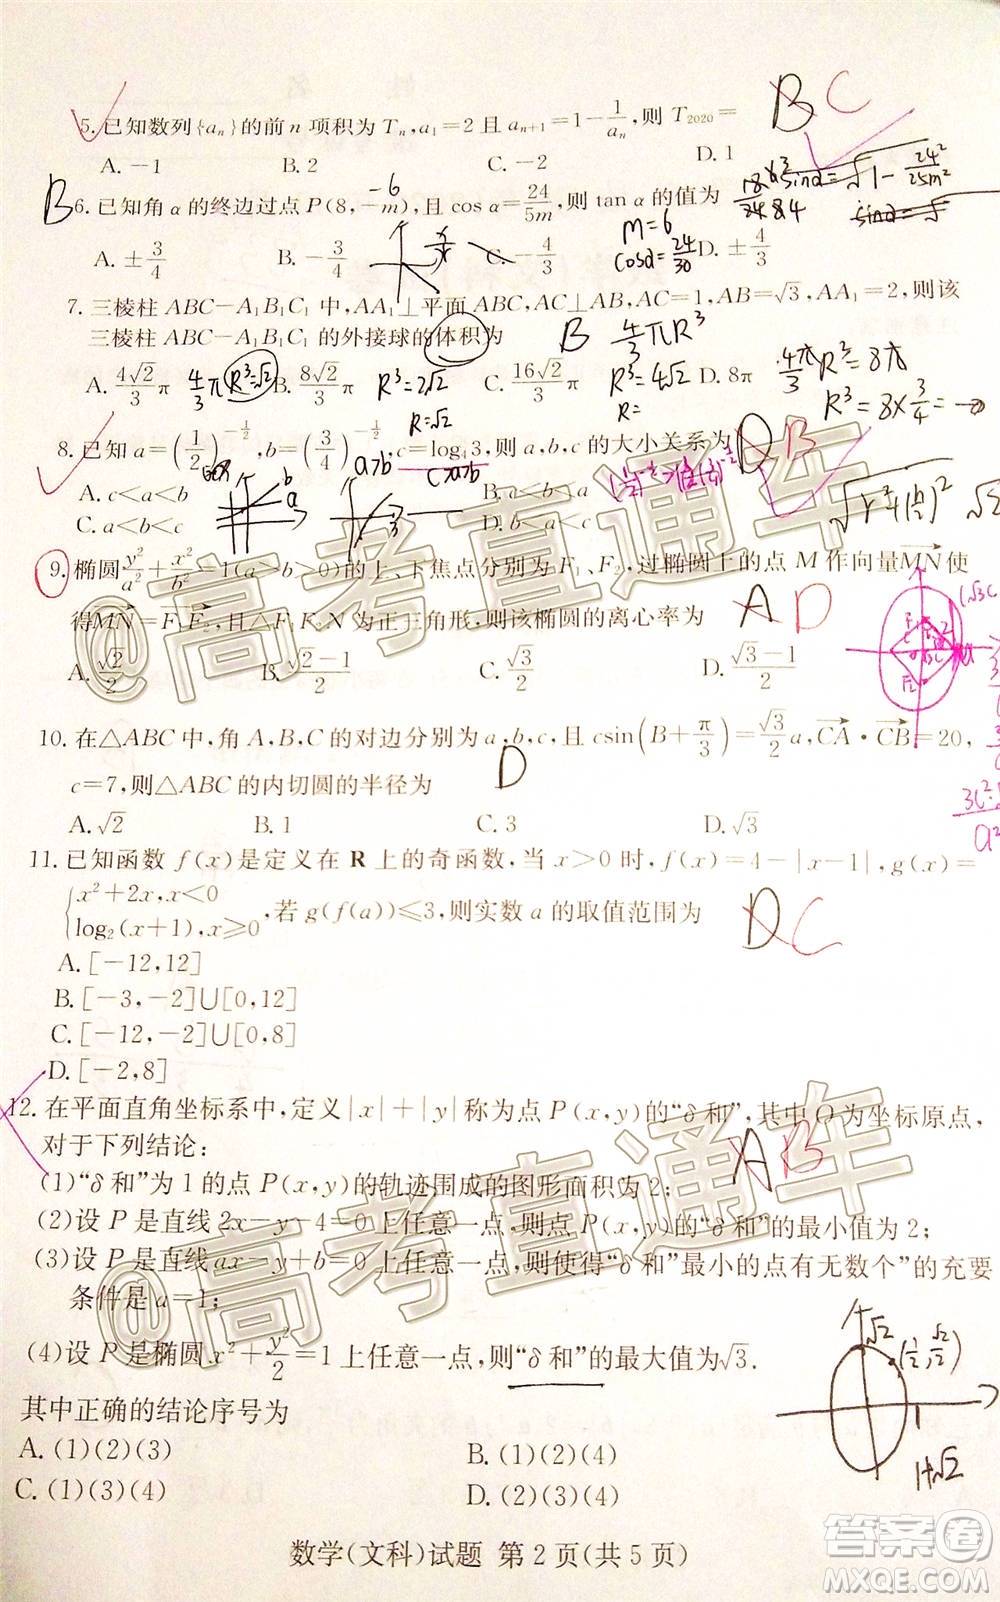 5. 已知数列{aₙ}的前n项积为Tₙ,a₁=2且aₙ₊₁=1-1/aₙ,则T₂₀₂₀=
B C
A. -1 B. 2 C. -2 D. 1
B 6. 已知角α的终边过点P(8,-m),且cos α=24/5m,则tan α的值为
-6
m=6
cosα=24/30
A. ±3/4 B. -3/4 C. -4/3 D. ±4/3
7. 三棱柱ABC-A₁B₁C₁中,AA₁⊥平面ABC,AC⊥AB,AC=1,AB=√3,AA₁=2,则该
三棱柱ABC-A₁B₁C₁的外接球的体积为
B 4/3πR³
A. 4√2/3 π B. 8√2/3 π C. 16√2/3 π D. 8π
4/3π R³=√2 R³=2√2 R³=4√2 4/3πR³=8π
R=√2 R= R³=8×3/4=
8. 已知a=(1/2)^(-1/2),b=(3/4)^(-1/2),c=log₄3,则a,b,c的大小关系为
D B
a>b
c>a>b
A. c<a<b B. c<b<a
C. a<b<c D. b<a<c
9. 椭圆y²/a²+x²/b²=1(a>b>0)的上、下焦点分别为F₁、F₂,过椭圆上的点M作向量MN使
得MN=F₁F₂,且△F₁F₂N为正三角形,则该椭圆的离心率为
A D
A. √2/2 B. (√2-1)/2 C. √3/2 D. (√3-1)/2
10. 在△ABC中,角A,B,C的对边分别为a,b,c,且csin(B+π/3)=√3/2 a,CA·CB=20,
c=7,则△ABC的内切圆的半径为
D
A. √2 B. 1 C. 3 D. √3
11. 已知函数f(x)是定义在R上的奇函数,当x>0时,f(x)=4-|x-1|,g(x)=
{x²+2x,x<0
log₂(x+1),x≥0,若g(f(a))≤3,则实数a的取值范围为
D C
A. [-12,12]
B. [-3,-2]∪[0,12]
C. [-12,-2]∪[0,8]
D. [-2,8]
12. 在平面直角坐标系中,定义|x|+|y|称为点P(x,y)的“δ和”,其中O为坐标原点,
对于下列结论:
A B
(1)“δ和”为1的点P(x,y)的轨迹围成的图形面积为2;
(2)设P是直线2x-y-4=0上任意一点,则点P(x,y)的“δ和”的最小值为2;
(3)设P是直线ax-y+b=0上任意一点,则使得“δ和”最小的点有无数个”的充要
条件是a=1;
(4)设P是椭圆x²+y²/2=1上任意一点,则“δ和”的最大值为√3.
√2
(1/2,√2/2)
1
1+√2
其中正确的结论序号为
A. (1)(2)(3) B. (1)(2)(4)
C. (1)(3)(4) D. (2)(3)(4)
数学(文科)试题 第2页(共5页)
@高考直通车
@高考直通车
答案圈
MXQE.COM